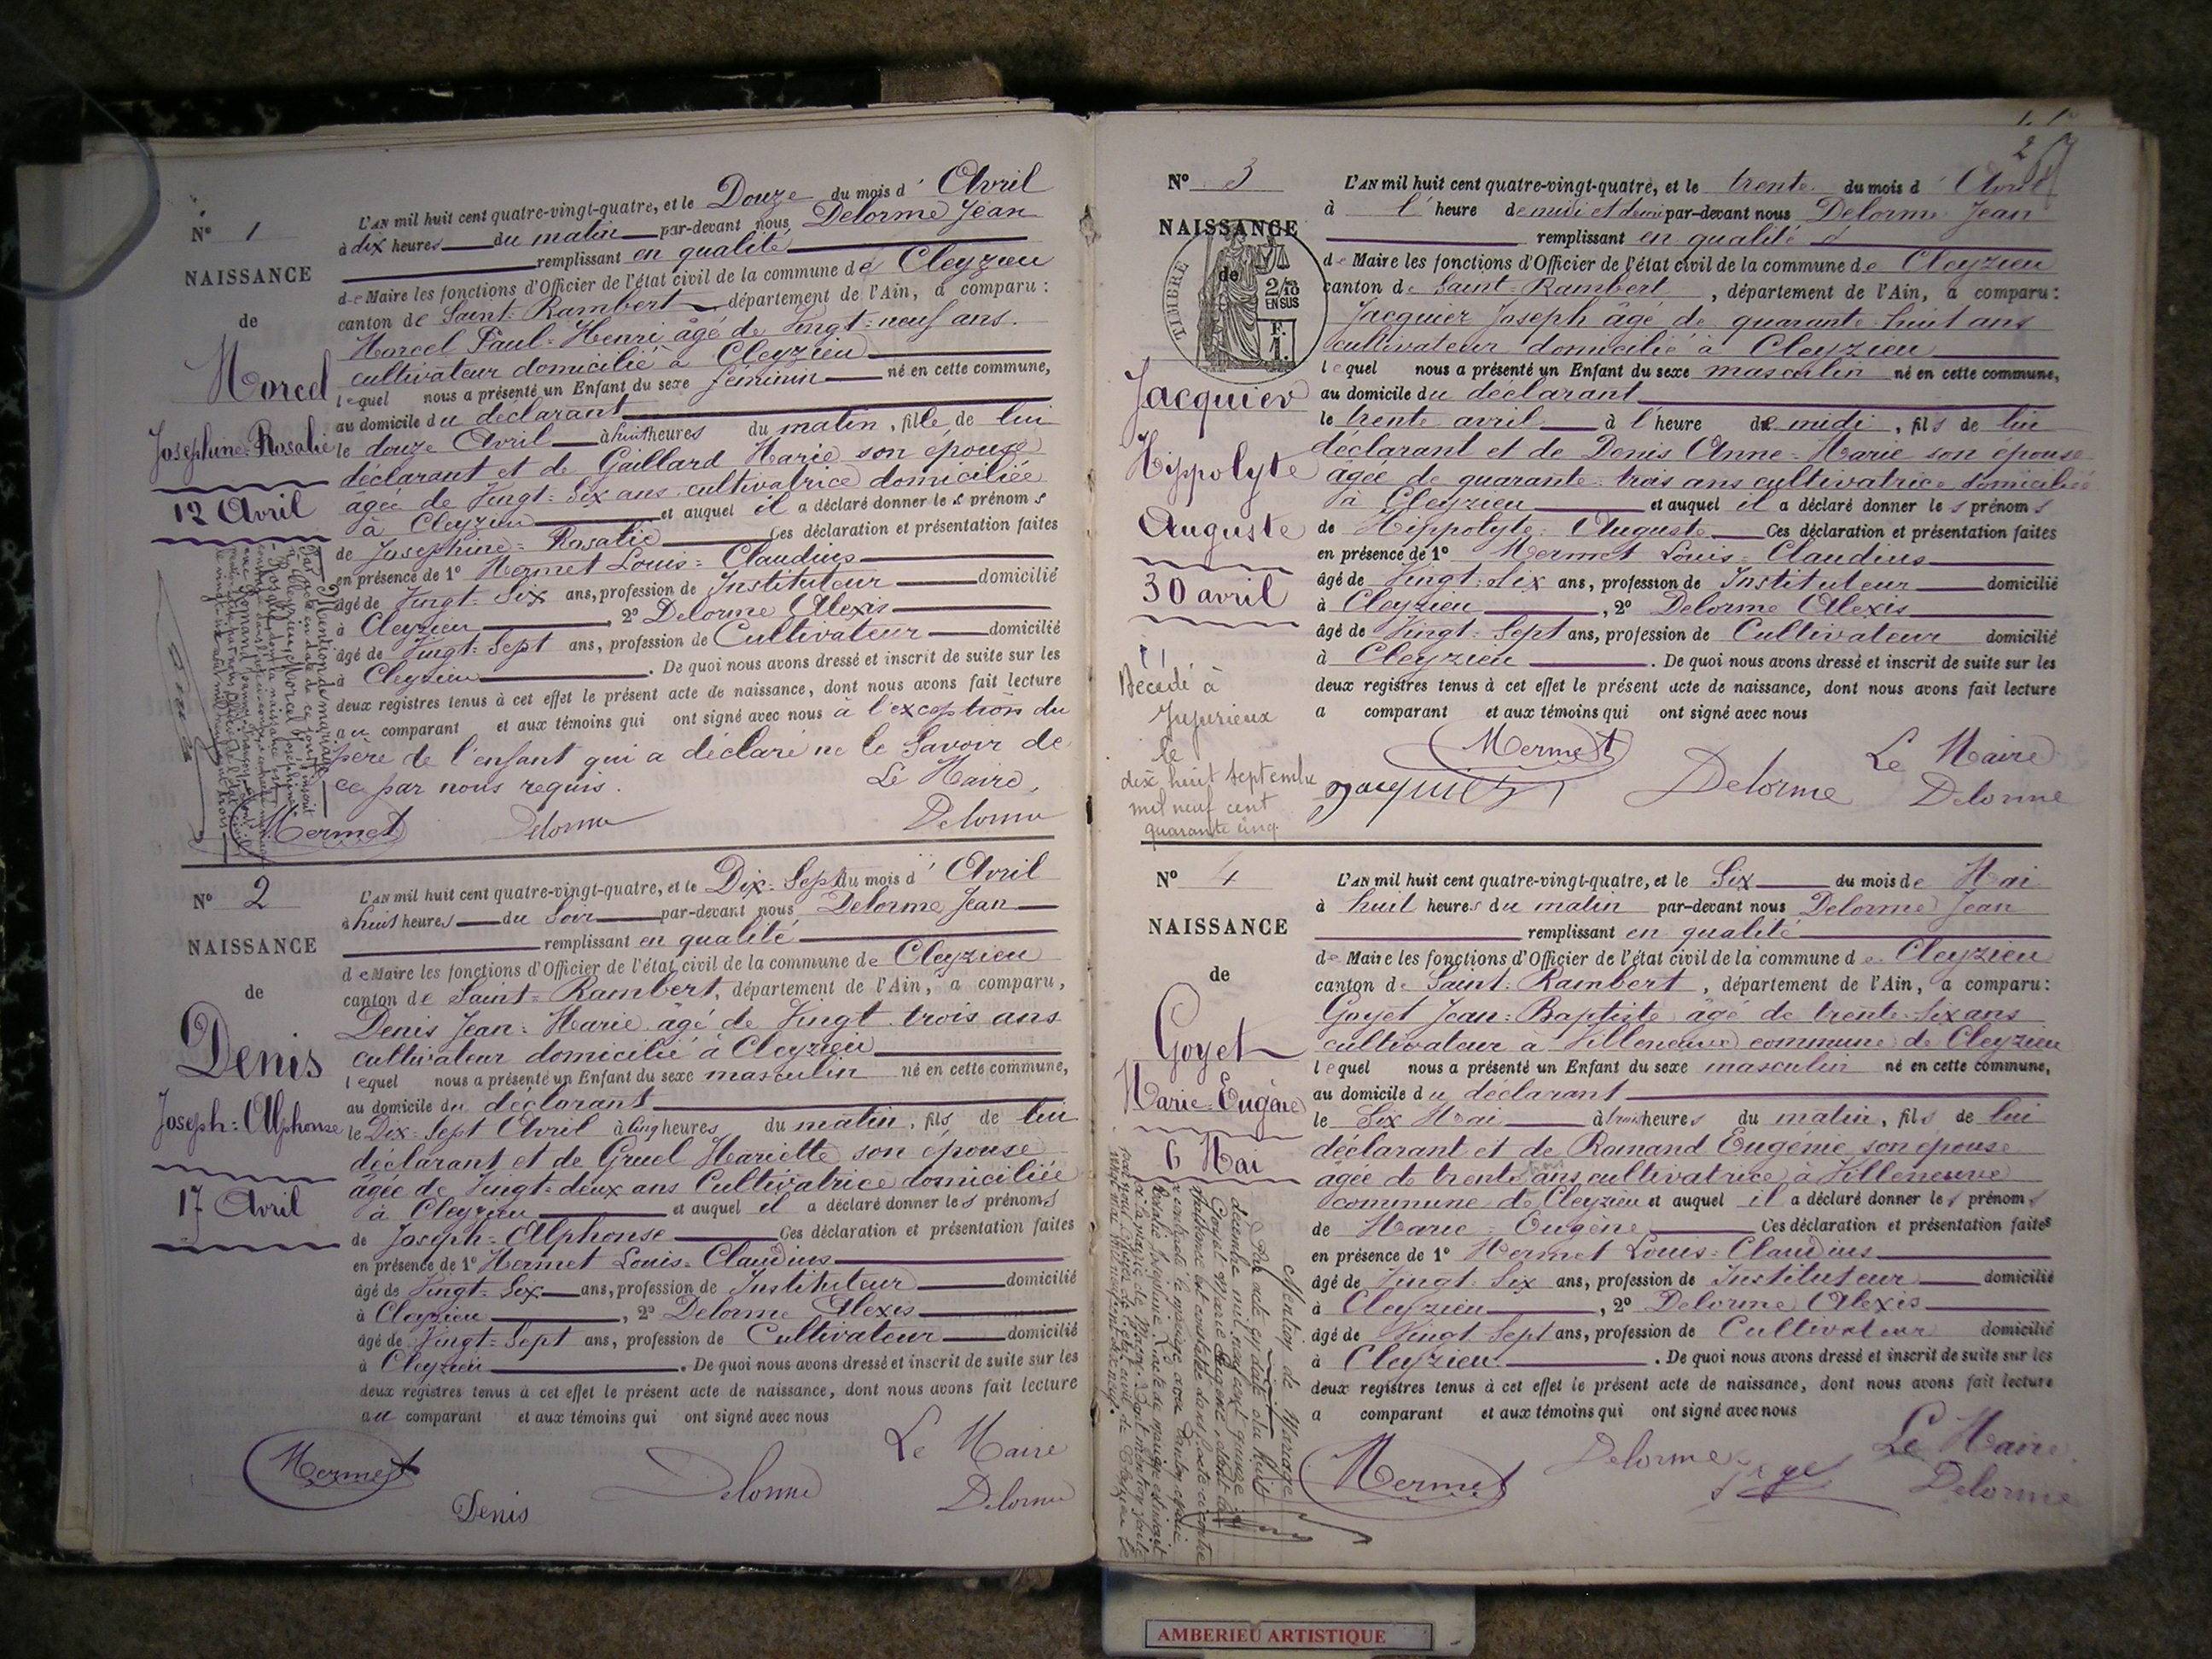 N° 1
NAISSANCE
de
Morcel
Joséphine=Rosalie
12 Avril
Mention de mariage
L'AN mil huit cent quatre-vingt-quatre, et le Douze du mois d'Avril
à dix heures du matin par-devant nous Delorme Jean
remplissant en qualité
de Maire les fonctions d'Officier de l'état civil de la commune de Cleyzieu
canton de Saint=Rambert département de l'Ain, a comparu :
Morcel Paul=Henri âgé de Vingt=neuf ans.
cultivateur domicilié à Cleyzieu
lequel nous a présenté un Enfant du sexe féminin né en cette commune,
au domicile du déclarant
le douze Avril à huit heures du matin, fille de lui
déclarant et de Gaillard Marie son épouse
âgée de Vingt=Six ans cultivatrice domiciliée
à Cleyzieu et auquel il a déclaré donner les prénoms
de Joséphine=Rosalie Ces déclaration et présentation faites
en présence de 1° Mermet Louis=Claudius
âgé de Vingt=Six ans, profession de Instituteur domicilié
à Cleyzieu, 2° Delorme Alexis
âgé de Vingt=Sept ans, profession de Cultivateur domicilié
à Cleyzieu. De quoi nous avons dressé et inscrit de suite sur les
deux registres tenus à cet effet le présent acte de naissance, dont nous avons fait lecture
au comparant et aux témoins qui ont signé avec nous à l'exception du
père de l'enfant qui a déclaré ne le Savoir de
ce par nous requis.
Le Maire,
Mermet Delorme Delorme
N° 2
NAISSANCE
de
Denis
Joseph=Alphonse
17 Avril
L'AN mil huit cent quatre-vingt-quatre, et le Dix=Sept du mois d'Avril
à huit heures du Soir par-devant nous Delorme Jean
remplissant en qualité
de Maire les fonctions d'Officier de l'état civil de la commune de Cleyzieu
canton de Saint=Rambert, département de l'Ain, a comparu,
Denis Jean=Marie âgé de Vingt trois ans
cultivateur domicilié à Cleyzieu
lequel nous a présenté un Enfant du sexe masculin né en cette commune,
au domicile du déclarant
le Dix=Sept Avril à cinq heures du matin, fils de lui
déclarant et de Gruel Mariette son épouse
âgée de Vingt=deux ans Cultivatrice domiciliée
à Cleyzieu et auquel il a déclaré donner les prénoms
de Joseph=Alphonse Ces déclaration et présentation faites
en présence de 1° Mermet Louis=Claudius
âgé de Vingt=Six ans, profession de Instituteur domicilié
à Cleyzieu, 2° Delorme Alexis
âgé de Vingt=Sept ans, profession de Cultivateur domicilié
à Cleyzieu. De quoi nous avons dressé et inscrit de suite sur les
deux registres tenus à cet effet le présent acte de naissance, dont nous avons fait lecture
au comparant et aux témoins qui ont signé avec nous
Le Maire
Mermet Denis Delorme Delorme
2
N° 3
NAISSANCE
de
TIMBRE
2/10 EN SUS
F. 1.
Jacquier
Hippolyte
Auguste
30 avril
Décédé à
Jujurieux
le
dix huit Septembre
mil neuf cent
quarante cinq
L'AN mil huit cent quatre-vingt-quatre, et le trente du mois d'Avril
à l'heure de midi et demi par-devant nous Delorme Jean
remplissant en qualité d
de Maire les fonctions d'Officier de l'état civil de la commune de Cleyzieu
canton de Saint=Rambert, département de l'Ain, a comparu :
Jacquier Joseph âgé de quarante huit ans
cultivateur domicilié à Cleyzieu
lequel nous a présenté un Enfant du sexe masculin né en cette commune,
au domicile du déclarant
le trente avril à l'heure de midi, fils de lui
déclarant et de Denis Anne=Marie son épouse
âgée de quarante=trois ans cultivatrice domiciliée
à Cleyzieu et auquel il a déclaré donner les prénoms
de Hippolyte=Auguste Ces déclaration et présentation faites
en présence de 1° Mermet Louis=Claudius
âgé de Vingt=Six ans, profession de Instituteur domicilié
à Cleyzieu, 2° Delorme Alexis
âgé de Vingt=Sept ans, profession de Cultivateur domicilié
à Cleyzieu. De quoi nous avons dressé et inscrit de suite sur les
deux registres tenus à cet effet le présent acte de naissance, dont nous avons fait lecture
a comparant et aux témoins qui ont signé avec nous
Mermet Le Maire
Jacquier Delorme Delorme
N° 4
NAISSANCE
de
Goyet
Marie=Eugène
6 Mai
Mention de Mariage
Par acte en date du huit
décembre mil neuf cent quinze
L'AN mil huit cent quatre-vingt-quatre, et le Six du mois de Mai
à huit heures du matin par-devant nous Delorme Jean
remplissant en qualité
de Maire les fonctions d'Officier de l'état civil de la commune de Cleyzieu
canton de Saint=Rambert, département de l'Ain, a comparu :
Goyet Jean=Baptiste âgé de trente=Six ans
cultivateur à Villeneuve commune de Cleyzieu
lequel nous a présenté un Enfant du sexe masculin né en cette commune,
au domicile du déclarant
le Six Mai à trois heures du matin, fils de lui
déclarant et de Ramand Eugénie son épouse
âgée de trente ans, cultivatrice, à Villeneuve
commune de Cleyzieu et auquel il a déclaré donner les prénoms
de Marie=Eugène Ces déclaration et présentation faites
en présence de 1° Mermet Louis=Claudius
âgé de Vingt=Six ans, profession de Instituteur domicilié
à Cleyzieu, 2° Delorme Alexis
âgé de Vingt Sept ans, profession de Cultivateur domicilié
à Cleyzieu. De quoi nous avons dressé et inscrit de suite sur les
deux registres tenus à cet effet le présent acte de naissance, dont nous avons fait lecture
a comparant et aux témoins qui ont signé avec nous
Le Maire
Mermet Delorme Delorme
AMBERIEU ARTISTIQUE